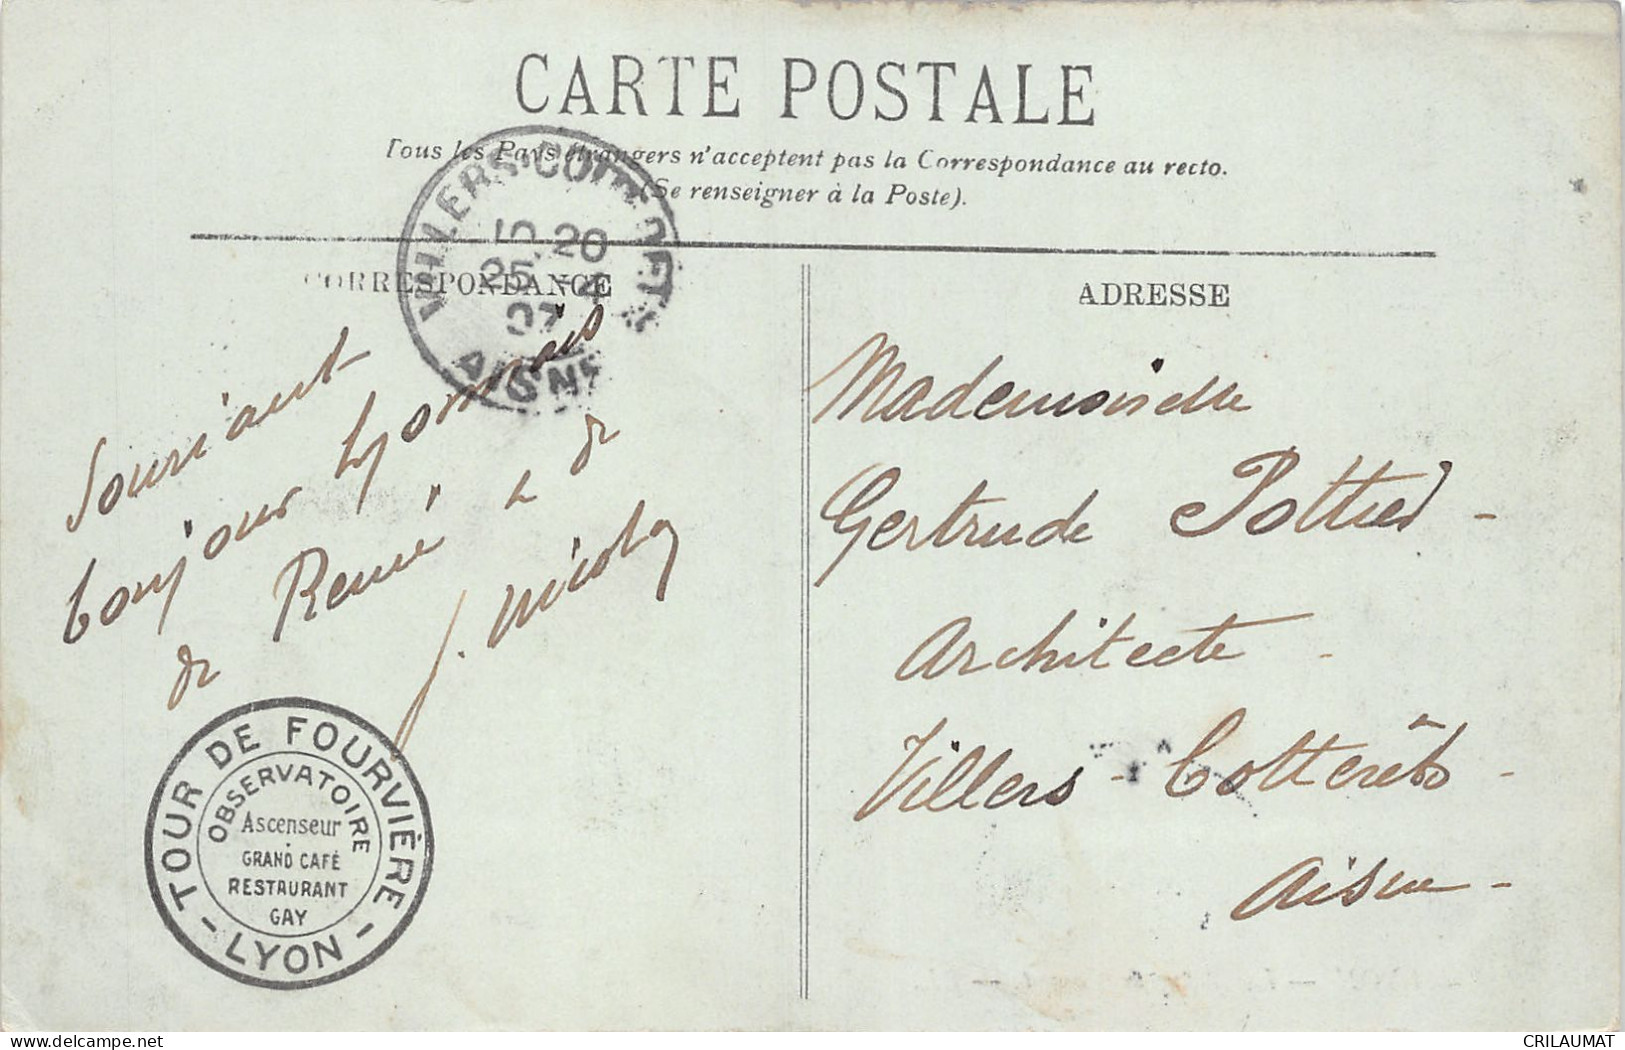 CARTE POSTALE
Tous les Pays étrangers n'acceptent pas la Correspondance au recto.
(Se renseigner à la Poste).
VILLERS-COTTERETS
10.20
25 -4
07
AISNE
CORRESPONDANCE
Souriant
bonjour Lyonnais
de René & de
J. Nicolas
ADRESSE
Mademoiselle
Gertrude Pottier -
Architecte -
Villers - Cotterêts -
Aisne -
TOUR DE FOURVIÈRE
OBSERVATOIRE
Ascenseur
GRAND CAFÉ
RESTAURANT
GAY
- LYON -
delcampe.net
CRILAUMAT